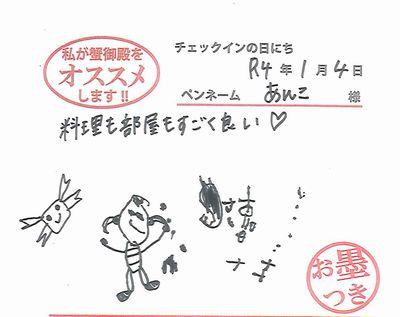 私が蟹御殿を
オススメ
します!!
チェックインの日にち
R4年1月4日
ペンネーム あんこ 様
料理も部屋もすごく良い♡
お墨
つき